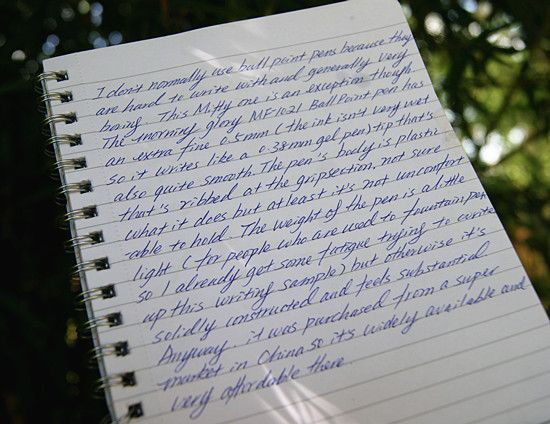 I don't normally use ball point pens because they
are hard to write with and generally very
boring. This Mifty one is an exception though.
The morning glory MF-1021 Ball Point pen has
an extra fine 0.5mm (the ink isn't very wet
so it writes like a 0.38mm gel pen) tip that's
also quite smooth. The pen's body is plastic
that's ribbed at the gripsection. not sure
what it does but at least it's not uncomfort
-able to hold. The weight of the pen is a little
light (for people who are used to fountain pen
so I already got some fatigue trying to write
up this writing sample) but otherwise it's
solidly constructed and feels substantial
Anyway it was purchased from a super
market in China so it's widely available and
very affordable there.